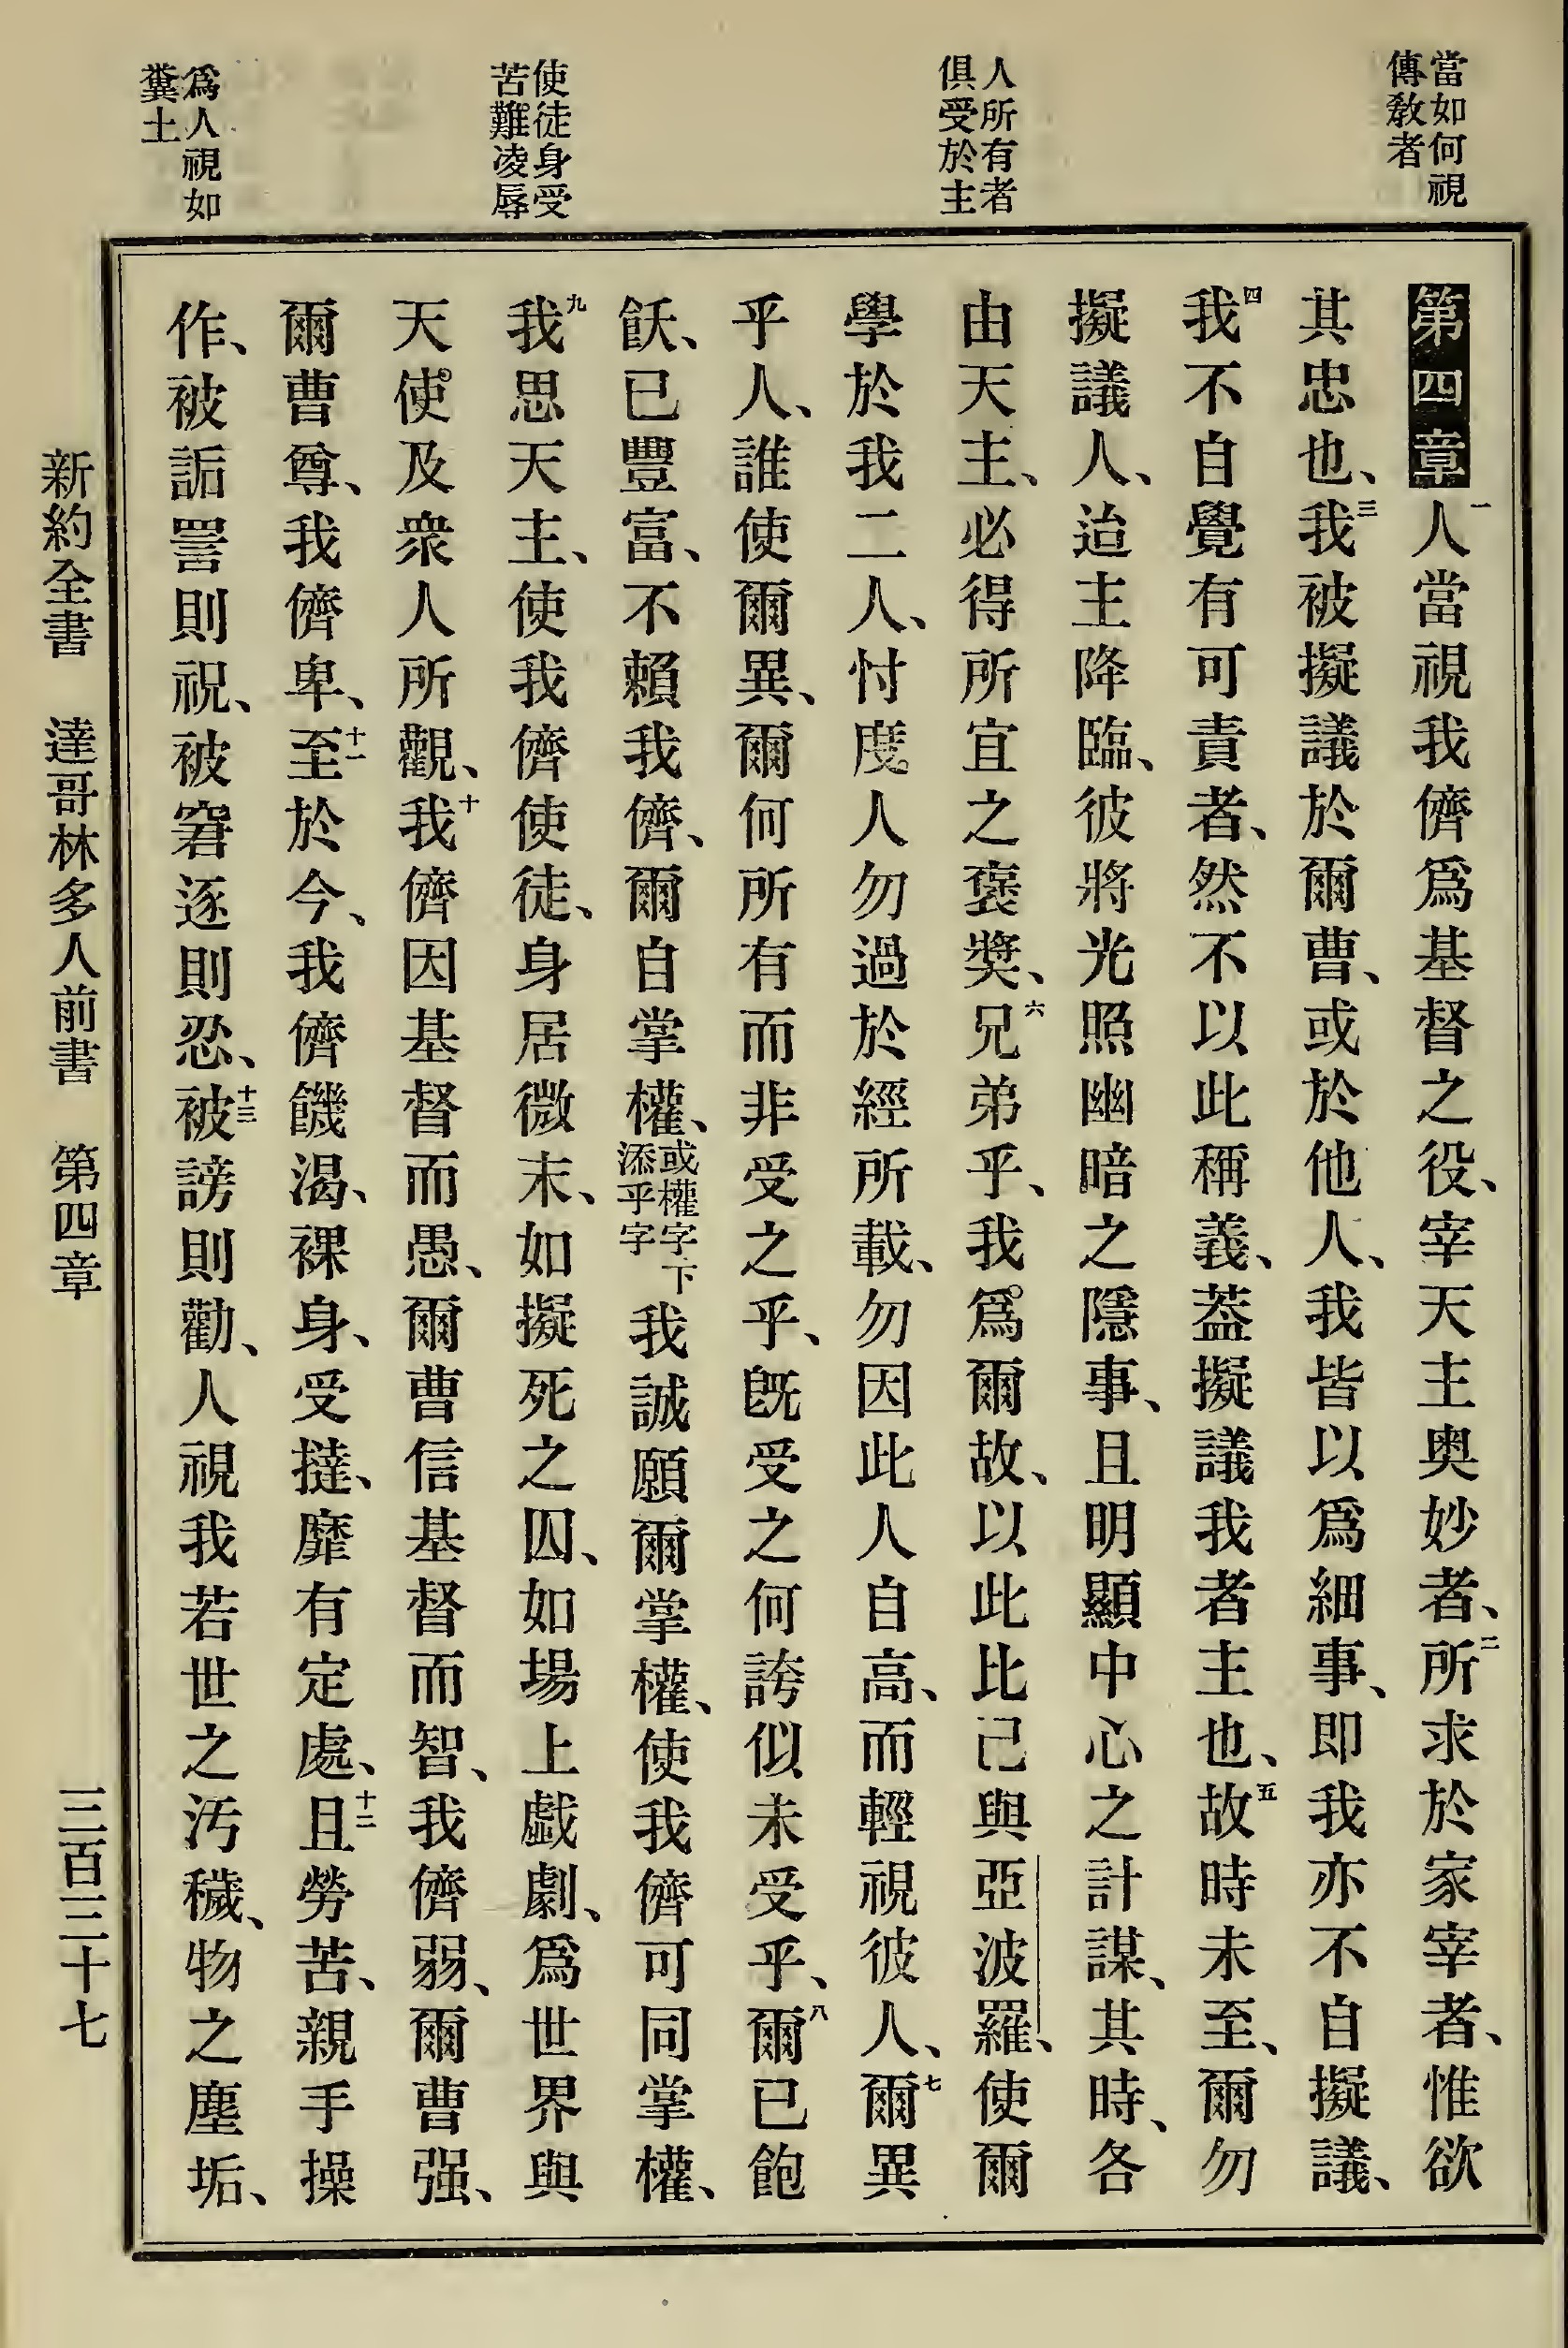 當如何視
傳教者
人所有者
俱受於主
使徒身受
苦難凌辱
爲人視如
糞土
第四章一人當視我儕爲基督之役、宰天主奥妙者、二所求於家宰者、惟欲
其忠也、三我被擬議於爾曹、或於他人、我皆以爲細事、即我亦不自擬議、
四我不自覺有可責者、然不以此稱義、葢擬議我者主也、五故時未至、爾勿
擬議人、迨主降臨、彼將光照幽暗之隱事、且明顯中心之計謀、其時、各
由天主、必得所宜之褒奬、六兄弟乎、我爲爾故、以此比己與亞波羅、使爾
學於我二人、忖度人勿過於經所載、勿因此人自高、而輕視彼人、七爾異
乎人、誰使爾異、爾何所有而非受之乎、旣受之何誇似未受乎、八爾已飽
飫、已豐富、不賴我儕、爾自掌權、或權字下添乎字我誠願爾掌權、使我儕可同掌權、
九我思天主、使我儕使徒、身居微末、如擬死之囚、如場上戲劇、爲世界與
天使及衆人所觀、十我儕因基督而愚、爾曹信基督而智、我儕弱、爾曹强、
爾曹尊、我儕卑、十一至於今、我儕饑渴、裸身、受撻、靡有定處、十二且勞苦、親手操
作、被詬詈則祝、被窘逐則忍、十三被謗則勸、人視我若世之汚穢、物之塵垢、
新約全書 達哥林多人前書 第四章 三百三十七